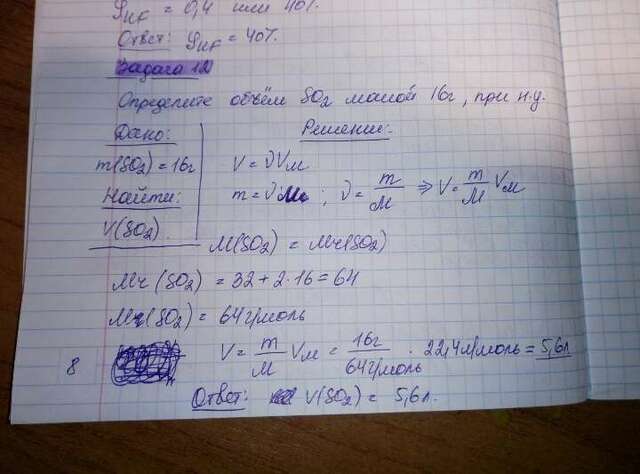 φ_HF = 0,4 или 40%.
Ответ: φ_HF = 40%.
Задача 12
Определите объём SO₂ массой 16г, при н.у.
Дано: Решение:
m(SO₂) = 16г V = νVм
Найти: m = νM ; ν = m/M ⇒ V = m/M Vм
V(SO₂).
M(SO₂) = Mч(SO₂)
Mч (SO₂) = 32 + 2·16 = 64
M(SO₂) = 64г/моль
V = m/M Vм = 16г/64г/моль · 22,4л/моль = 5,6л
8
Ответ: V(SO₂) = 5,6л.